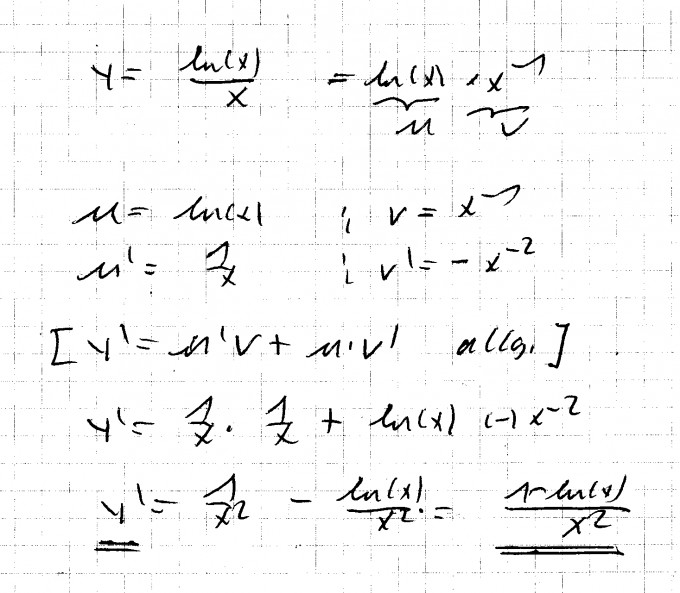 y = ln(x)/x = ln(x) · x⁻¹
u v
u = ln(x) ; v = x⁻¹
u' = 1/x ; v' = - x⁻²
[ y' = u'v + u·v' allg. ]
y' = 1/x · 1/x + ln(x) (-) x⁻²
y' = 1/x² - ln(x)/x² = 1-ln(x)/x²